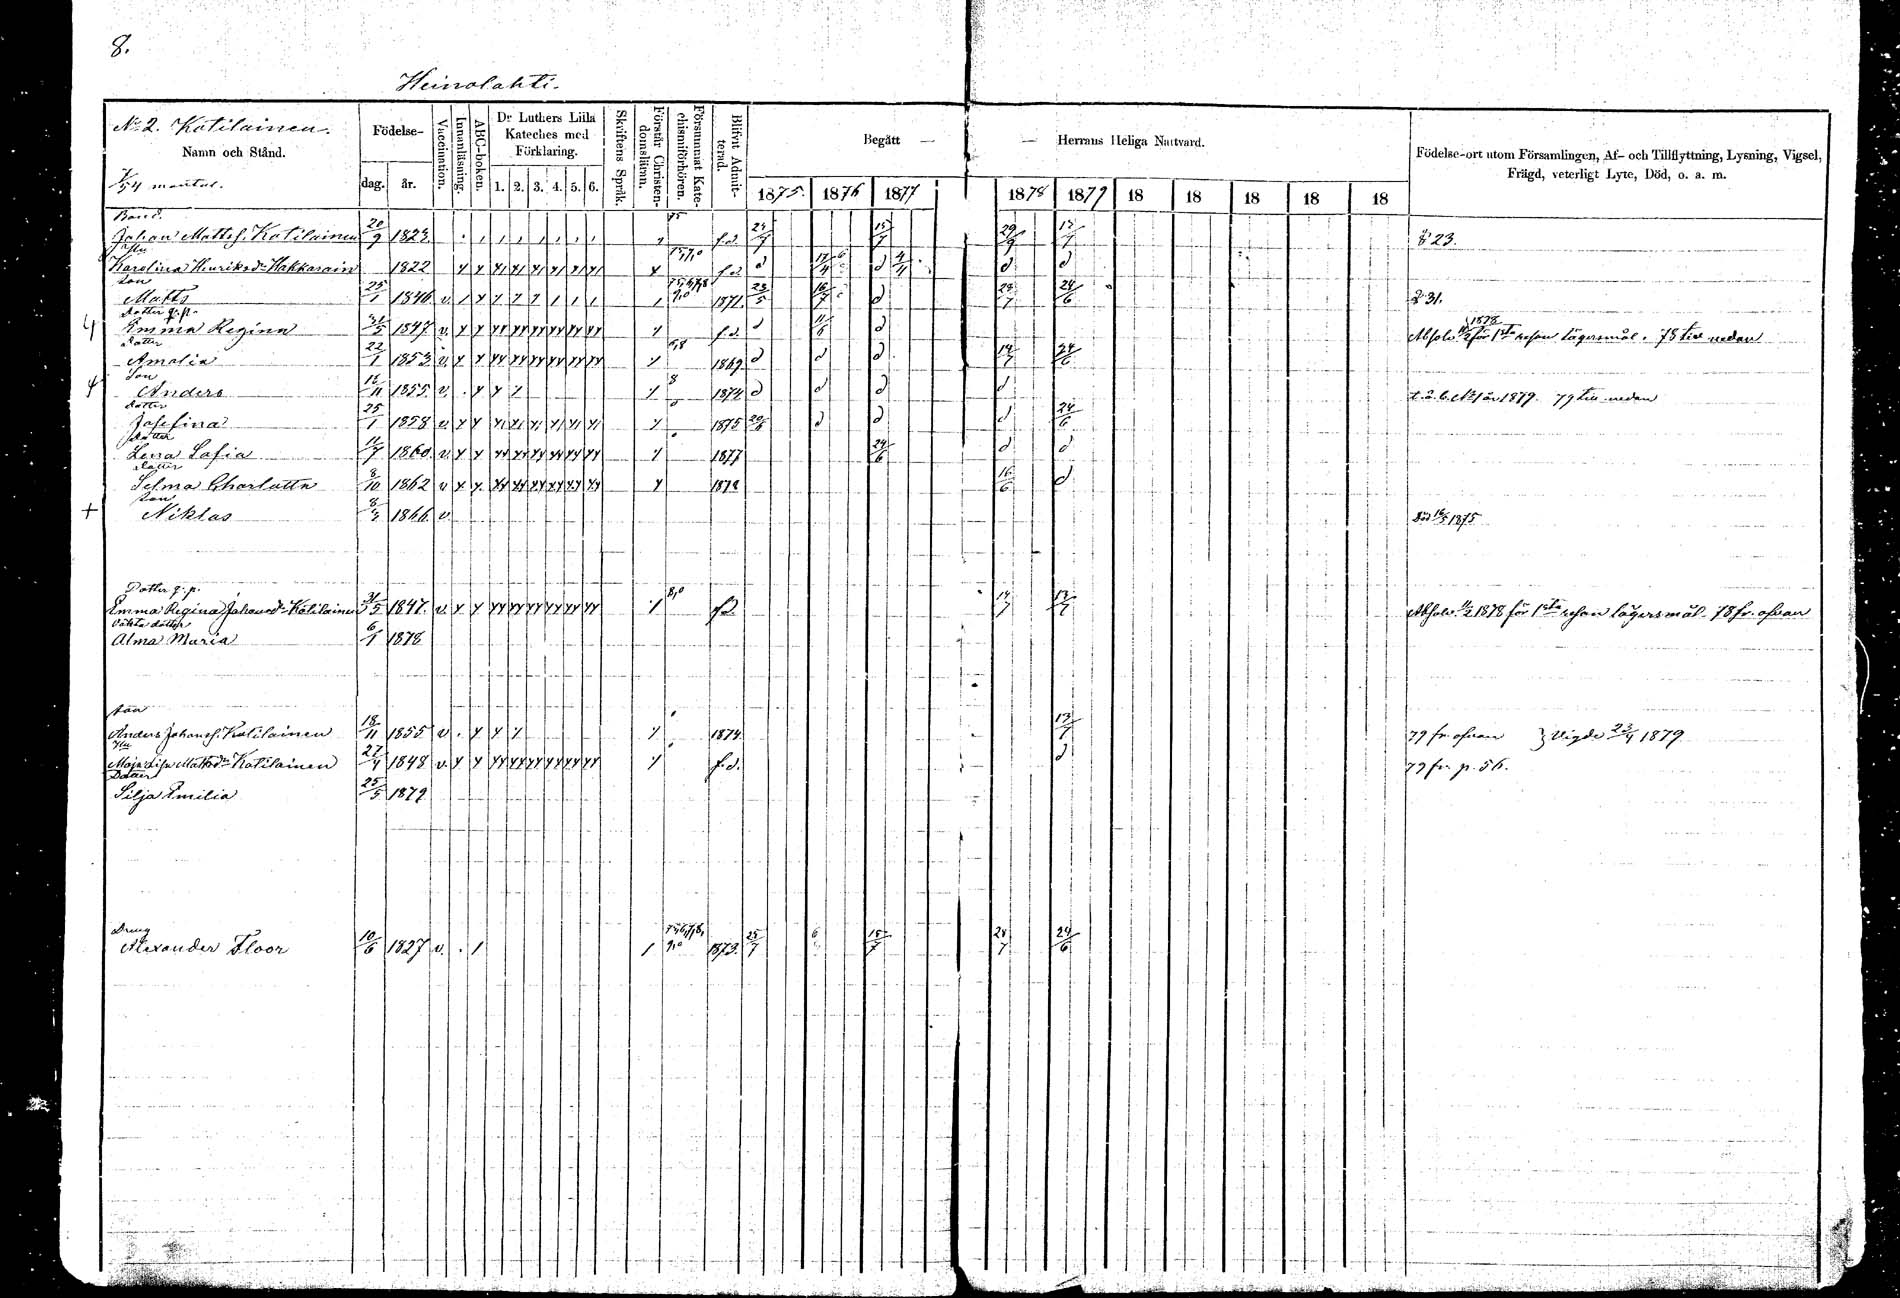 8.
Heinolahti.
No 2. Kotilainen.
Namn och Stånd.
1/54 mantal.
Födelse-
dag. år.
Vaccination.
Innanläsning.
ABC-boken.
Dr Luthers Lilla Kateches med Förklaring.
1. 2. 3. 4. 5. 6.
Skriftens Språk.
Förstår Christen-domsläran.
Försummat Kate-chismiförhören.
Blifvit Admit-terad.
Begått — — Herrans Heliga Nattvard.
1875. 1876 1877 1878 1879 18 18 18 18 18
Födelse-ort utom Församlingen, Af- och Tillflyttning, Lysning, Vigsel, Frägd, veterligt Lyte, Död, o. a. m.
Bond.
Johan Mattss. Kotilainen 20/9 1823 f.d. 15/7 29/9 § 23.
Karolina Henriksdr Hakkarain 1822 f.d. 17/4 d 4/4 d d
son
Matts 25/1 1846 v. 1871 23/5 16/7 d 28/7 24/6 § 31.
Dotter q.p.
Emma Regina 31/5 1847 v. f.d. d 11/6 d Absolv. 11/2 1878 för 1sta resan lägersmål. 78 till nedan
Dotter
Amalia 22/1 1853 v. 6,8 1869 d d d 14/7 24/6
Son
Anders 1855 v. 8 1874 d d d d 79 till nedan
Dotter
Josefina 25/1 1858 v. 1875 20/6 d d d 24/6
Dotter
Lena Sofia 11/7 1860 v. 1877 24/6 d d
Dotter
Selma Charlotta 8/10 1862 v. 1878 16/6 d
Son
+ Niklas 1866 v. Död 16/5 1875
Dotter q.p.
Emma Regina Johansdr Kotilainen 31/5 1847. v. 8,0 f.d. 14/7 13/7 Absolv. 11/2 1878 för 1sta resan lägersmål. 78 fr. ofvan
Oäkta dotter
Alma Maria 6/1 1878
Son
Anders Johanss. Kotilainen 18/11 1855 v. 1874 13/7 79 fr. ofvan } Vigde 23/4 1879
Hu
Maja Lisa Mattsdr Kotilainen 27/4 1848 v. f.d. d 79 fr. p. 56.
Dotter
Silja Emilia 25/5 1879
Dreng
Alexander Floor 10/6 1827 v. 1873. 25/7 15/7 28/7 24/6